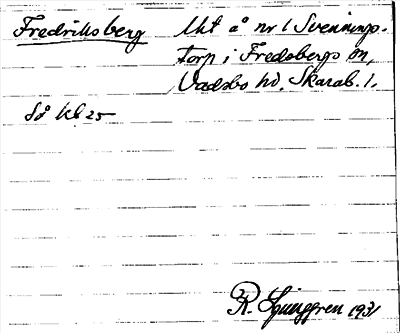 Fredriksberg Uht å nr 1 Svennings-
torp i Fredsbergs sn,
Vadsbo hd, Skarab. l.
Så kbl 25
R. Ljunggren 1931